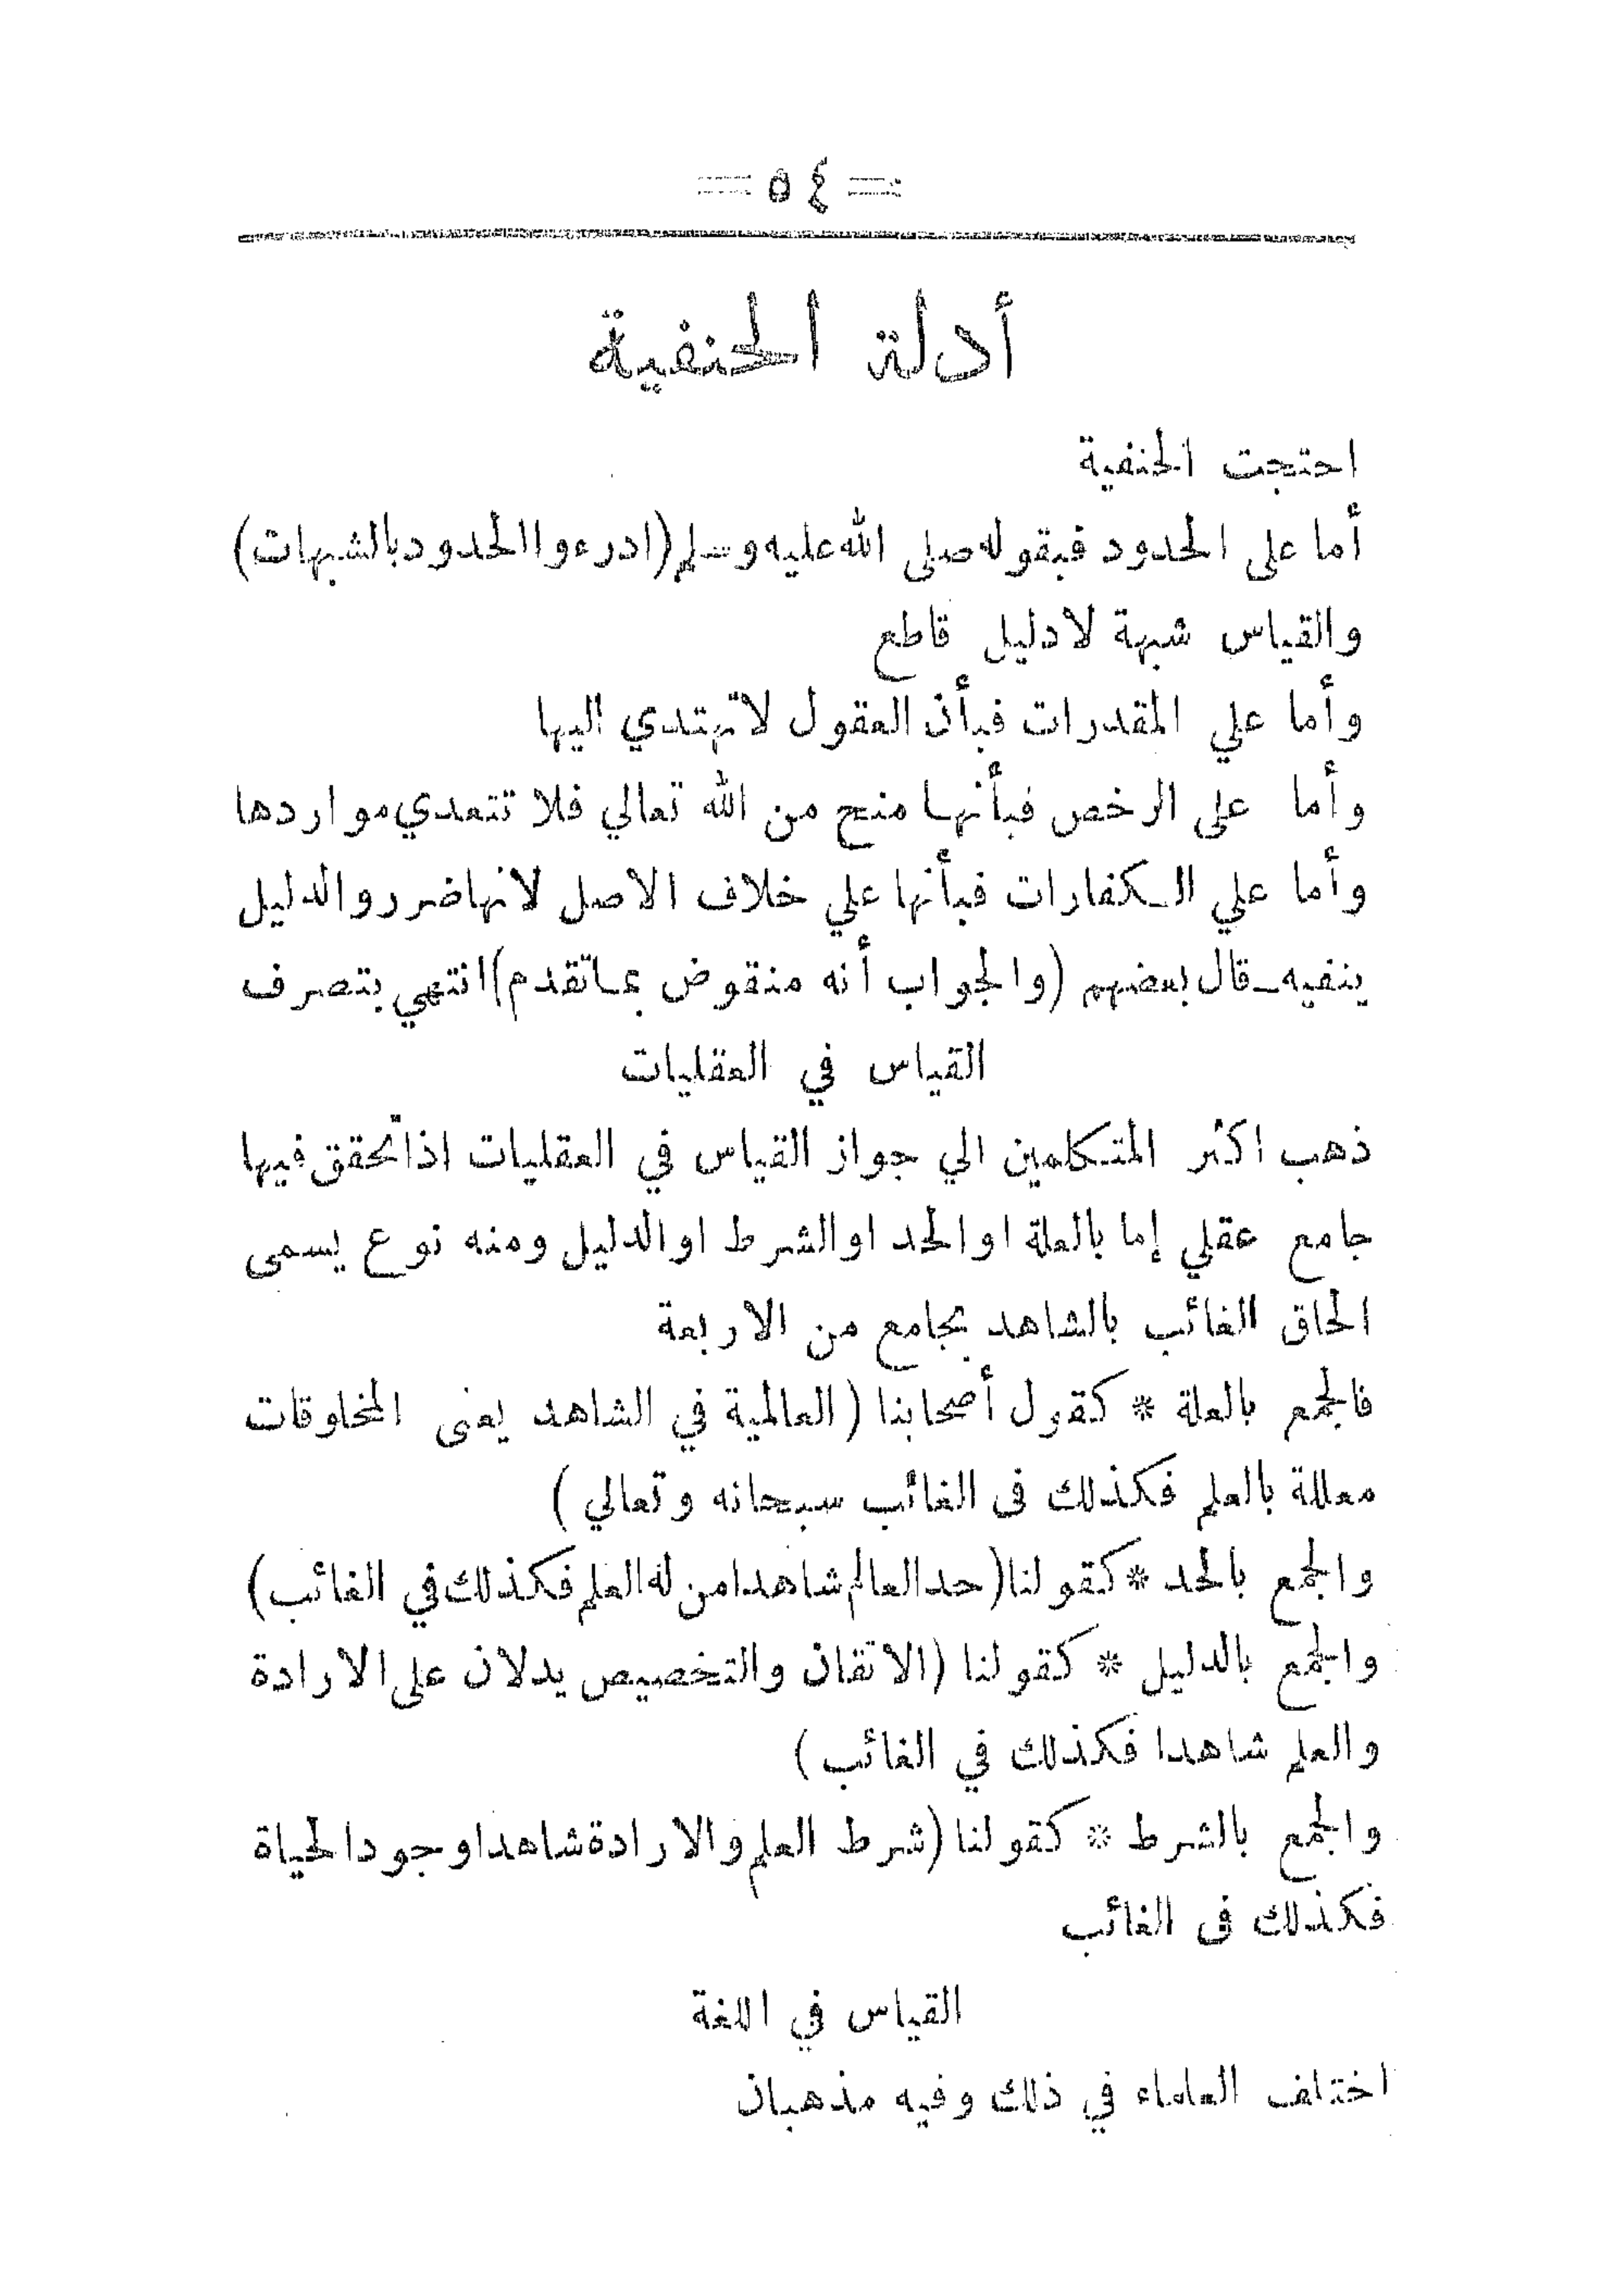 = ٥٤ =
أدلة الحنفية
احتجت الحنفية
أما على الحدود فبقوله صلى الله عليه وسلم (ادرءوا الحدود بالشبهات)
والقياس شبهة لا دليل قاطع
وأما علي المقدرات فبأن العقول لا تهتدي اليها
وأما على الرخص فبأنها منح من الله تعالي فلا تتعدي مواردها
وأما علي الكفارات فبأنها علي خلاف الاصل لانها ضرر والدليل
ينفيه ـ قال بعضهم (والجواب أنه منقوض بما تقدم) انتهي بتصرف
القياس في العقليات
ذهب اكثر المتكلمين الي جواز القياس في العقليات اذا تحقق فيها
جامع عقلي إما بالعلة او الحد او الشرط او الدليل ومنه نوع يسمى
الحاق الغائب بالشاهد بجامع من الاربعة
فالجمع بالعلة * كقول أصحابنا (العالمية في الشاهد يعنى المخلوقات
معللة بالعلم فكذلك فى الغائب سبحانه وتعالي)
والجمع بالحد * كقولنا (حد العالم شاهدا من له العلم فكذلك في الغائب)
والجمع بالدليل * كقولنا (الاتقان والتخصيص يدلان على الارادة
والعلم شاهدا فكذلك في الغائب)
والجمع بالشرط * كقولنا (شرط العلم والارادة شاهدا وجود الحياة
فكذلك فى الغائب
القياس في اللغة
اختلف العلماء في ذلك وفيه مذهبان